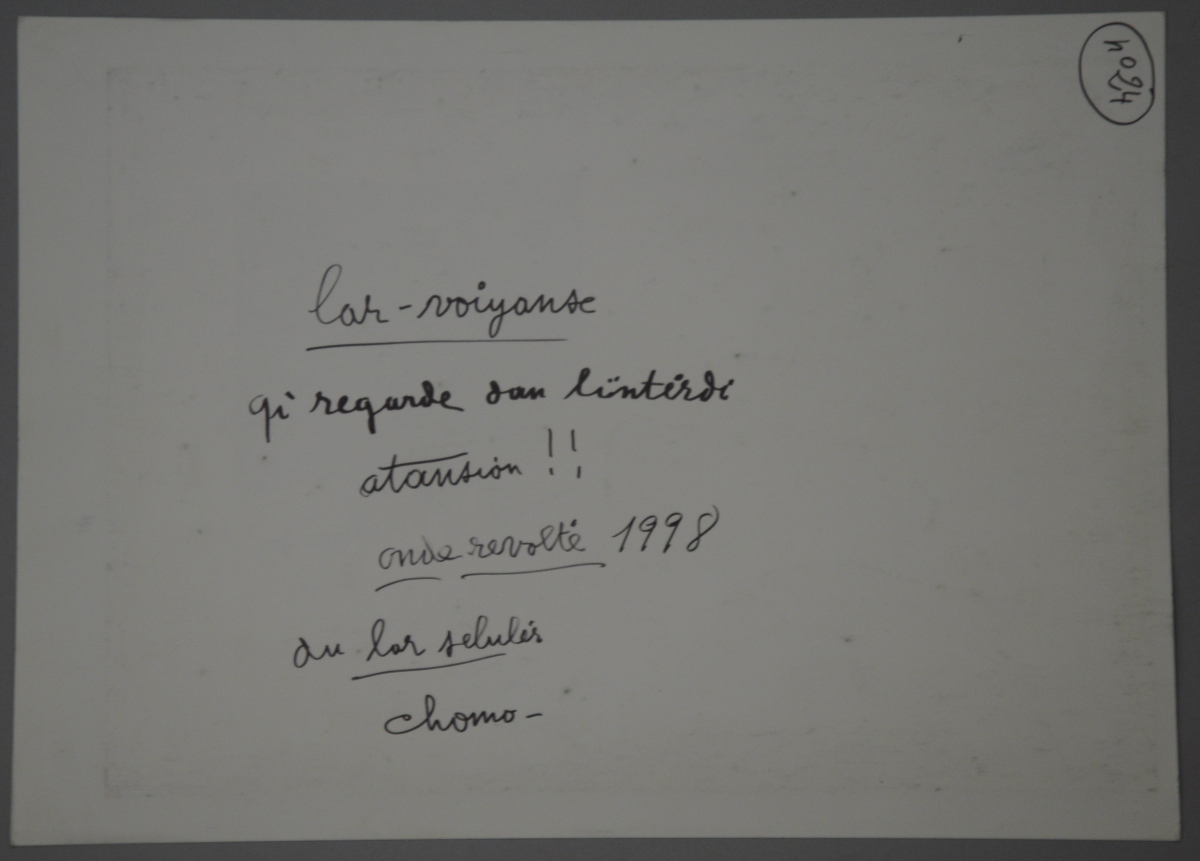 no24
lar-voiyanse
qi regarde dan lintérdi
atansion !!
onde revolté 1998
du larselulér
chomo-